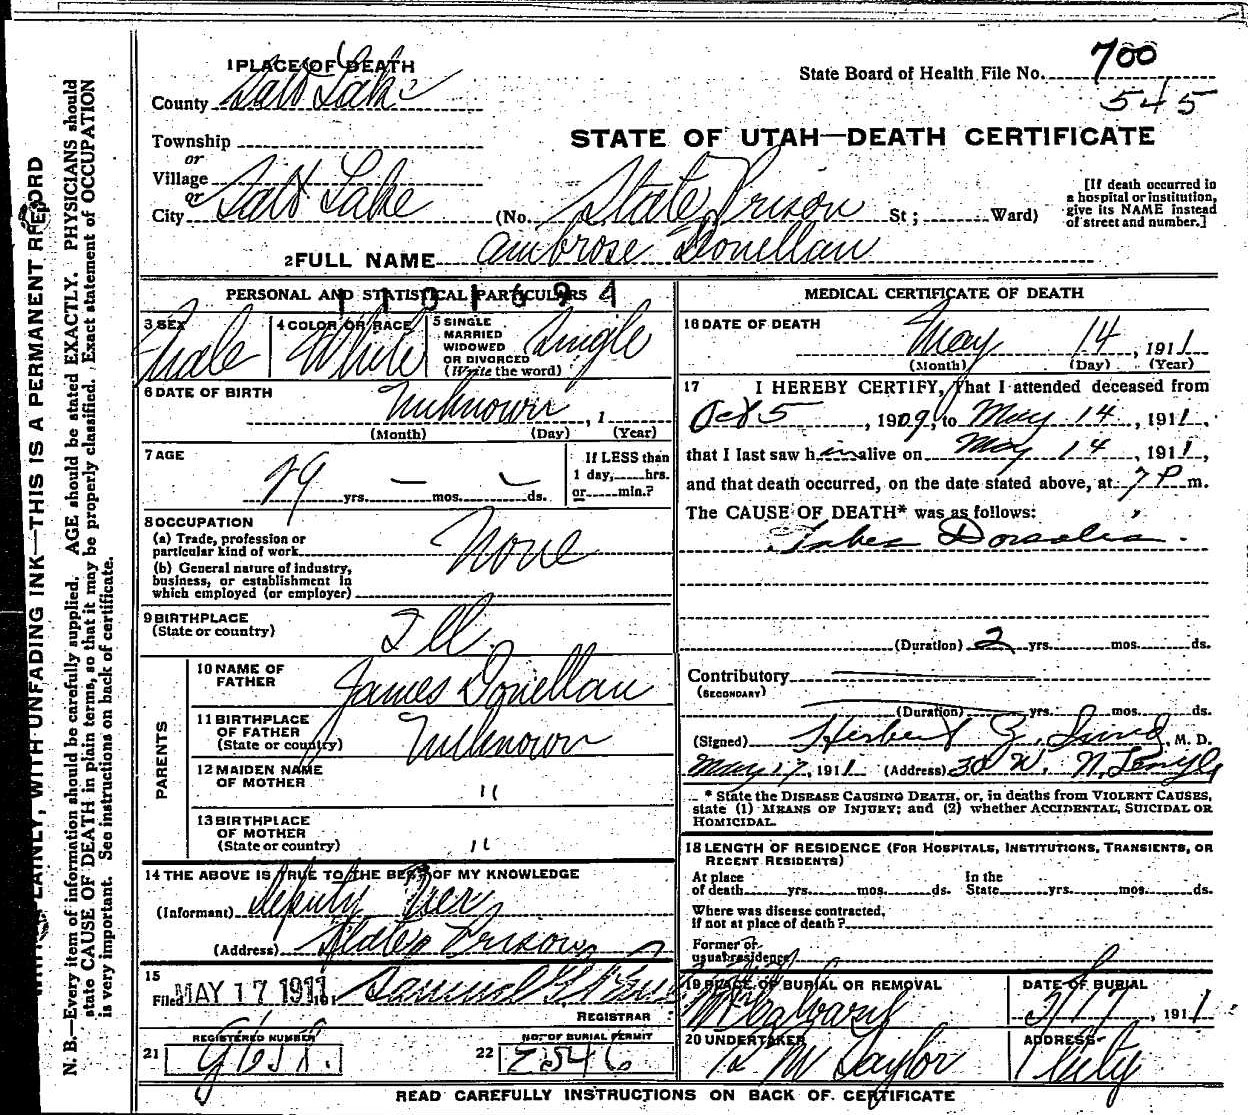 1 PLACE OF DEATH
County Salt Lake
State Board of Health File No. 700
545
STATE OF UTAH—DEATH CERTIFICATE
Township
or
Village
or
City Salt Lake (No. State Prison St; Ward)
[If death occurred in a hospital or institution, give its NAME instead of street and number.]
2 FULL NAME Ambrose Donellan
PERSONAL AND STATISTICAL PARTICULARS
3 SEX Male
4 COLOR OR RACE White
5 SINGLE MARRIED WIDOWED OR DIVORCED (Write the word) Single
6 DATE OF BIRTH Unknown, 1
(Month) (Day) (Year)
7 AGE 29 yrs. — mos. — ds.
If LESS than 1 day, hrs. or min.?
8 OCCUPATION
(a) Trade, profession or particular kind of work None
(b) General nature of industry, business, or establishment in which employed (or employer)
9 BIRTHPLACE (State or country) Ill.
PARENTS
10 NAME OF FATHER James Donellan
11 BIRTHPLACE OF FATHER (State or country) Unknown
12 MAIDEN NAME OF MOTHER "
13 BIRTHPLACE OF MOTHER (State or country) "
14 THE ABOVE IS TRUE TO THE BEST OF MY KNOWLEDGE
(Informant) Deputy
(Address) State Prison
15 Filed MAY 17 1911 Samuel G.
REGISTRAR
REGISTERED NUMBER
21
NO. OF BURIAL PERMIT
22 2546
MEDICAL CERTIFICATE OF DEATH
16 DATE OF DEATH
May 14, 1911
(Month) (Day) (Year)
17 I HEREBY CERTIFY, That I attended deceased from
Oct 5, 1909, to May 14, 1911,
that I last saw him alive on May 14, 1911,
and that death occurred, on the date stated above, at 7 P m.
The CAUSE OF DEATH* was as follows:
Tabes Dorsalis.
(Duration) 2 yrs. mos. ds.
Contributory
(SECONDARY)
(Duration) yrs. mos. ds.
(Signed) Herbert Z. , M. D.
May 17, 1911 (Address) 30 W. N. Temple
* State the DISEASE CAUSING DEATH, or, in deaths from VIOLENT CAUSES,
state (1) MEANS OF INJURY; and (2) whether ACCIDENTAL, SUICIDAL OR
HOMICIDAL.
18 LENGTH OF RESIDENCE (FOR HOSPITALS, INSTITUTIONS, TRANSIENTS, OR
RECENT RESIDENTS)
At place of death yrs. mos. ds. In the State yrs. mos. ds.
Where was disease contracted, if not at place of death?
Former or usual residence
19 PLACE OF BURIAL OR REMOVAL Mt Calvary
DATE OF BURIAL 5/17, 1911
20 UNDERTAKER Taylor
ADDRESS City
READ CAREFULLY INSTRUCTIONS ON BACK OF CERTIFICATE
PLAINLY, WITH UNFADING INK—THIS IS A PERMANENT RECORD
N. B.—Every item of information should be carefully supplied. AGE should be stated EXACTLY. PHYSICIANS should
state CAUSE OF DEATH in plain terms, so that it may be properly classified. Exact statement of OCCUPATION
is very important. See instructions on back of certificate.